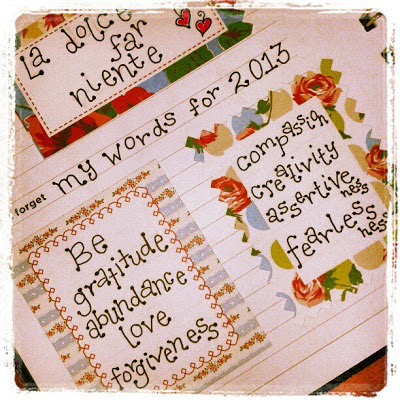 La dolce
far
niente
forget my words for 2013
compassion
creativity
assertive
ness
fearless
ness
Be
gratitude
abundance
love
forgiveness